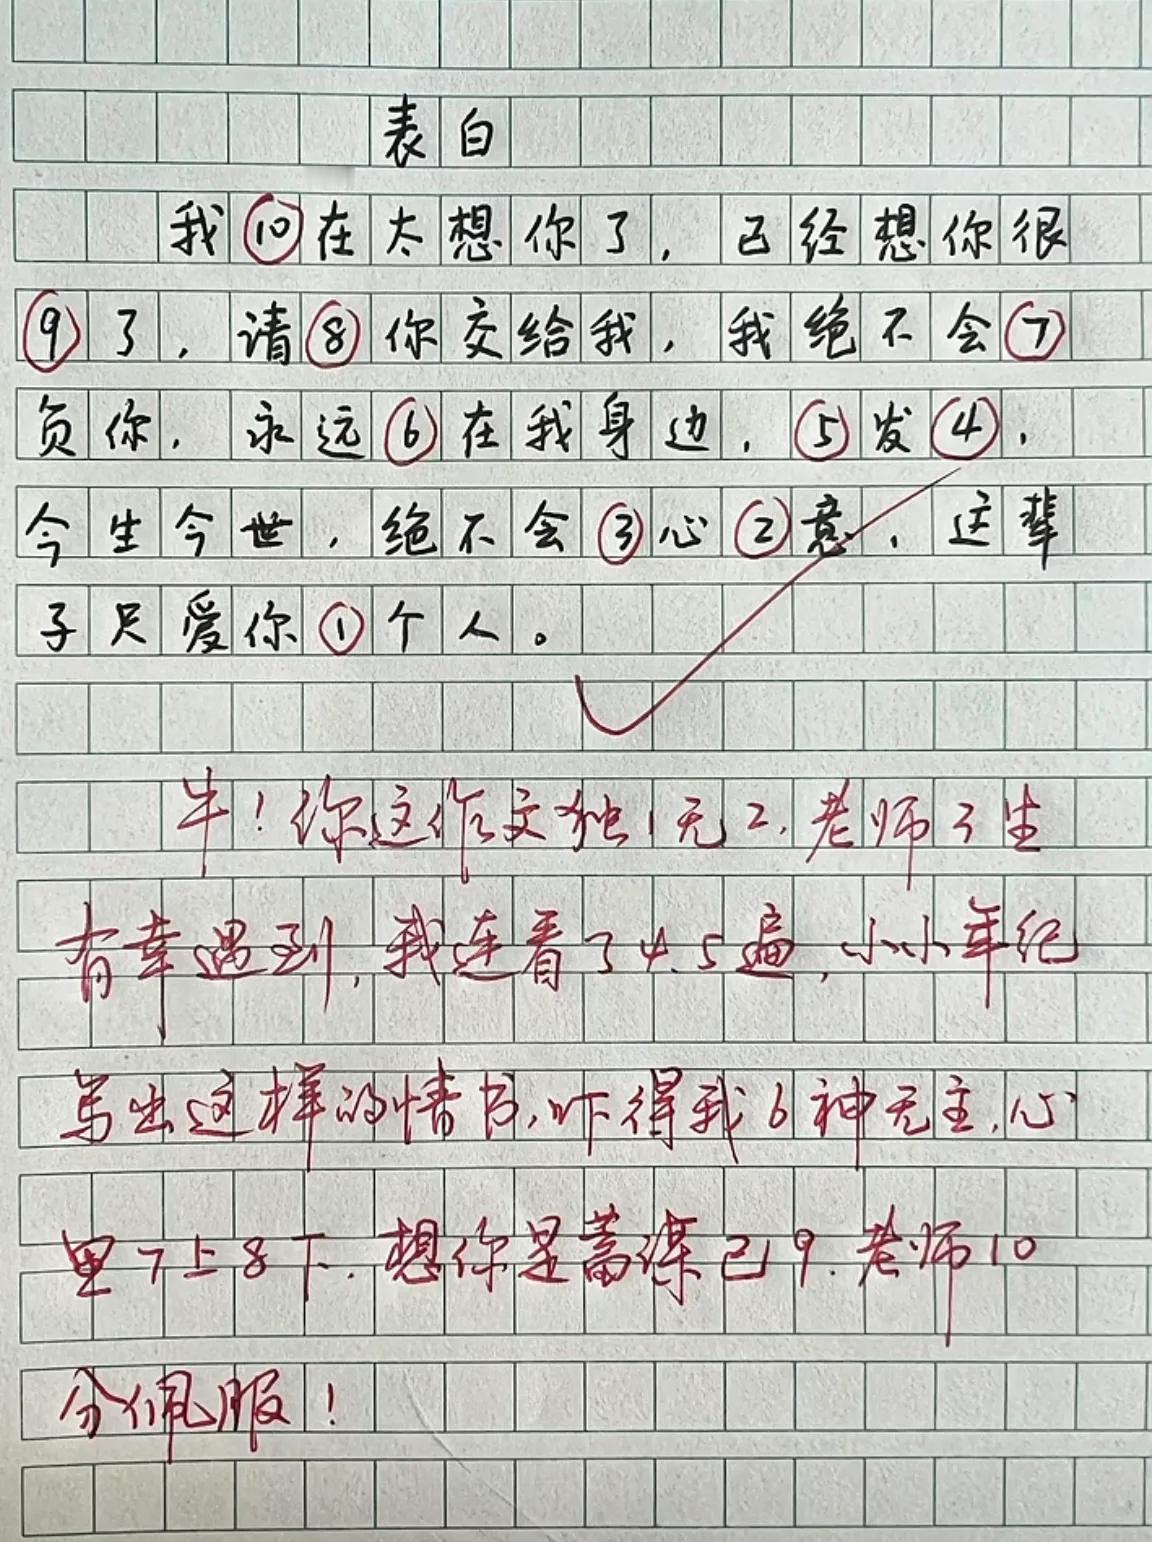 表白
我⑩在太想你了，已经想你很
⑨了，请⑧你交给我，我绝不会⑦
负你，永远⑥在我身边，⑤发④，
今生今世，绝不会③心②意，这辈
子只爱你①个人。
牛！你这作文独1无2，老师3生
有幸遇到，我连看了4.5遍，小小年纪
写出这样的情书，吓得我6神无主，心
里7上8下．想你是蓄谋已9．老师10
分佩服！